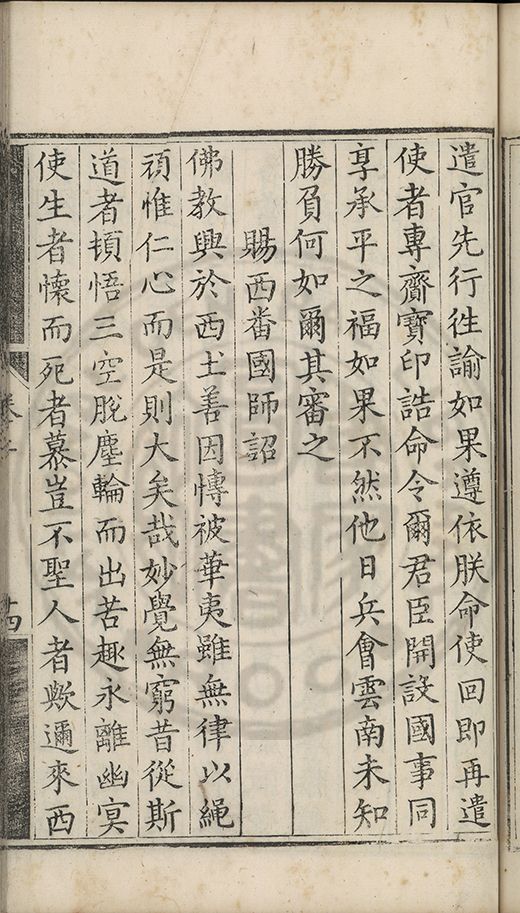 遣官先行徃諭如果遵依朕命使回即再遣
使者專齎寶印誥命令爾君臣開設國事同
享承平之福如果不然他日兵會雲南未知
勝負何如爾其審之
賜西番國師詔
佛教興於西土善因愽被華夷雖無律以繩
頑惟仁心而是則大矣哉妙覺無窮昔從斯
道者頓悟三空脫塵輪而出苦趣永離幽冥
使生者懷而死者慕豈不聖人者歟邇來西